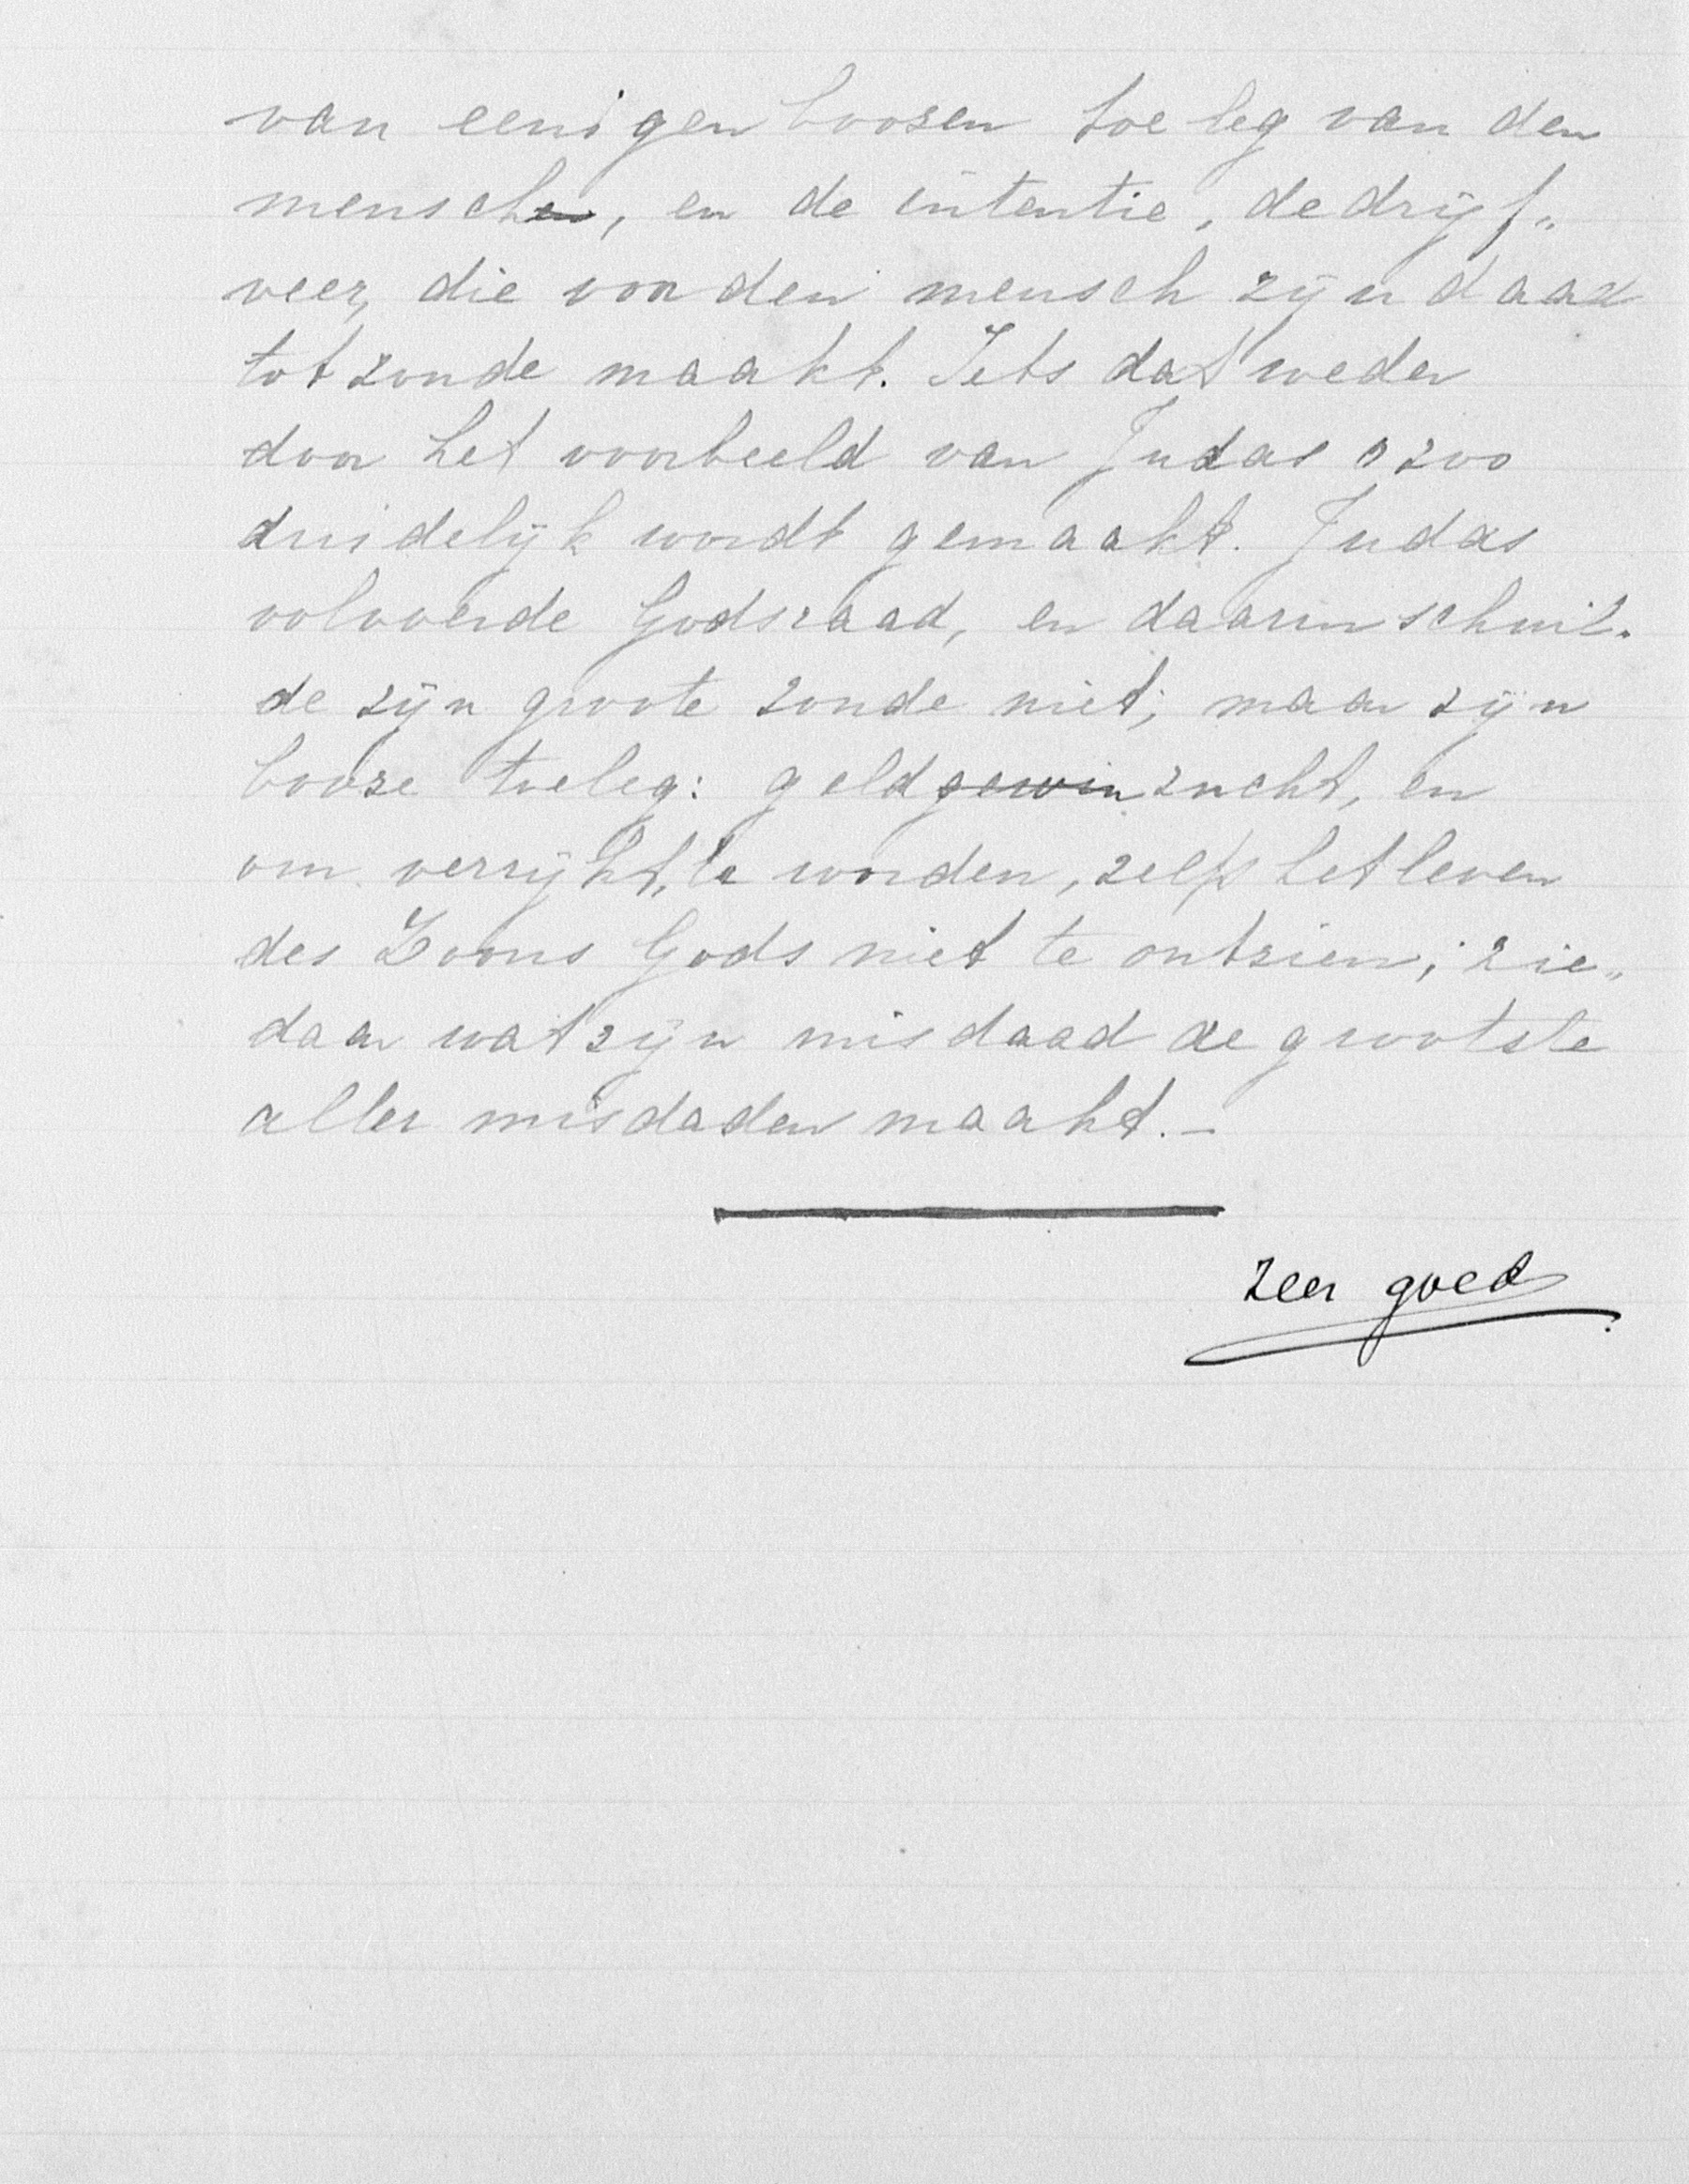 van eenigen boozen toeleg van den
menschen, en de intentie, de drijf„
veer, die voor den mensch zijn daad
tot zonde maakt. Iets dat weder
door het voorbeeld van Judas zoo
duidelijk wordt gemaakt. Judas
volvoerde Godsraad, en daarin schuil„
de zijn groote zonde niet; maar zijn
booze toeleg: geldgewinzucht, en
om verrijkt te worden, zelfs het leven
des Zoons Gods niet te ontzien; zie„
daar wat zijn misdaad de grootste
aller misdaden maakt.–
zeer goed